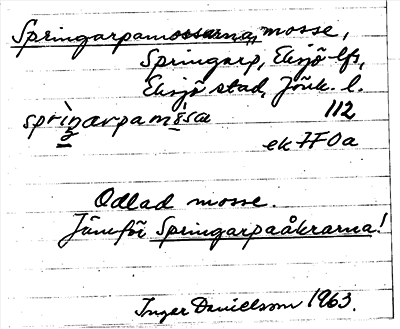 Springarpamossarna, mosse,
Springarp, Eksjö lfs,
Eksjö stad, Jönk. l.
sprìŋarpamósa 112
ek 7F0a
Odlad mosse.
Jämför Springarpaåkrarna!
Inger Danielsson 1963.